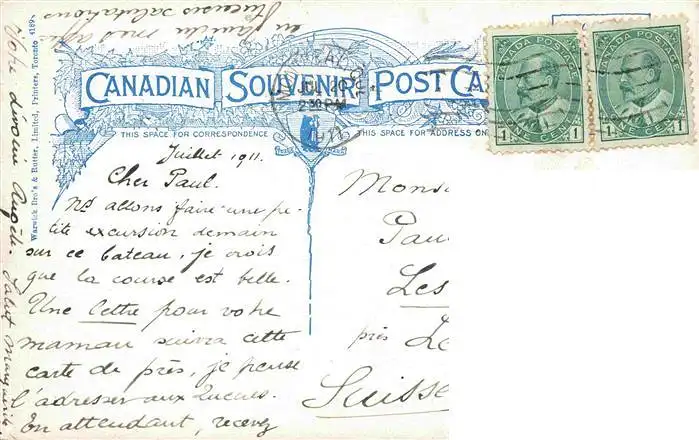 CANADIAN SOUVENIR POST CA
THIS SPACE FOR CORRESPONDENCE
THIS SPACE FOR ADDRESS ON
MONTREAL, QUE
JUL 20
2 30 PM
1911
CANADA POSTAGE
1 ONE CENT 1
CANADA POSTAGE
1 ONE CENT 1
Warwick Bro's & Rutter, Limited, Printers, Toronto
Juillet 1911.
Cher Paul.
Ns allons faire une pe-
tite excursion demain
sur ce bateau, je crois
que la course est belle.
Une lettre pour votre
maman suivra cette
carte de près, je pense
l'adresser aux
En attendant, recevez
salutations
Votre dévoué
Salut
Mons
Pau
Les
près
Suisse